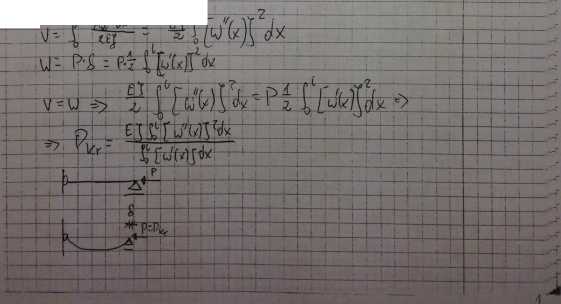 V = ∫₀ˡ / 2EJ = EJ/2 ∫₀ˡ [w''(x)]² dx
W = P·δ = P·1/2 ∫₀ˡ [w'(x)]² dx
V = W => EJ/2 ∫₀ˡ [w''(x)]² dx = P 1/2 ∫₀ˡ [w'(x)]² dx =>
=> Pkr = EJ ∫₀ˡ [w''(x)]² dx / ∫₀ˡ [w'(x)] dx
P
δ
P=Pkr